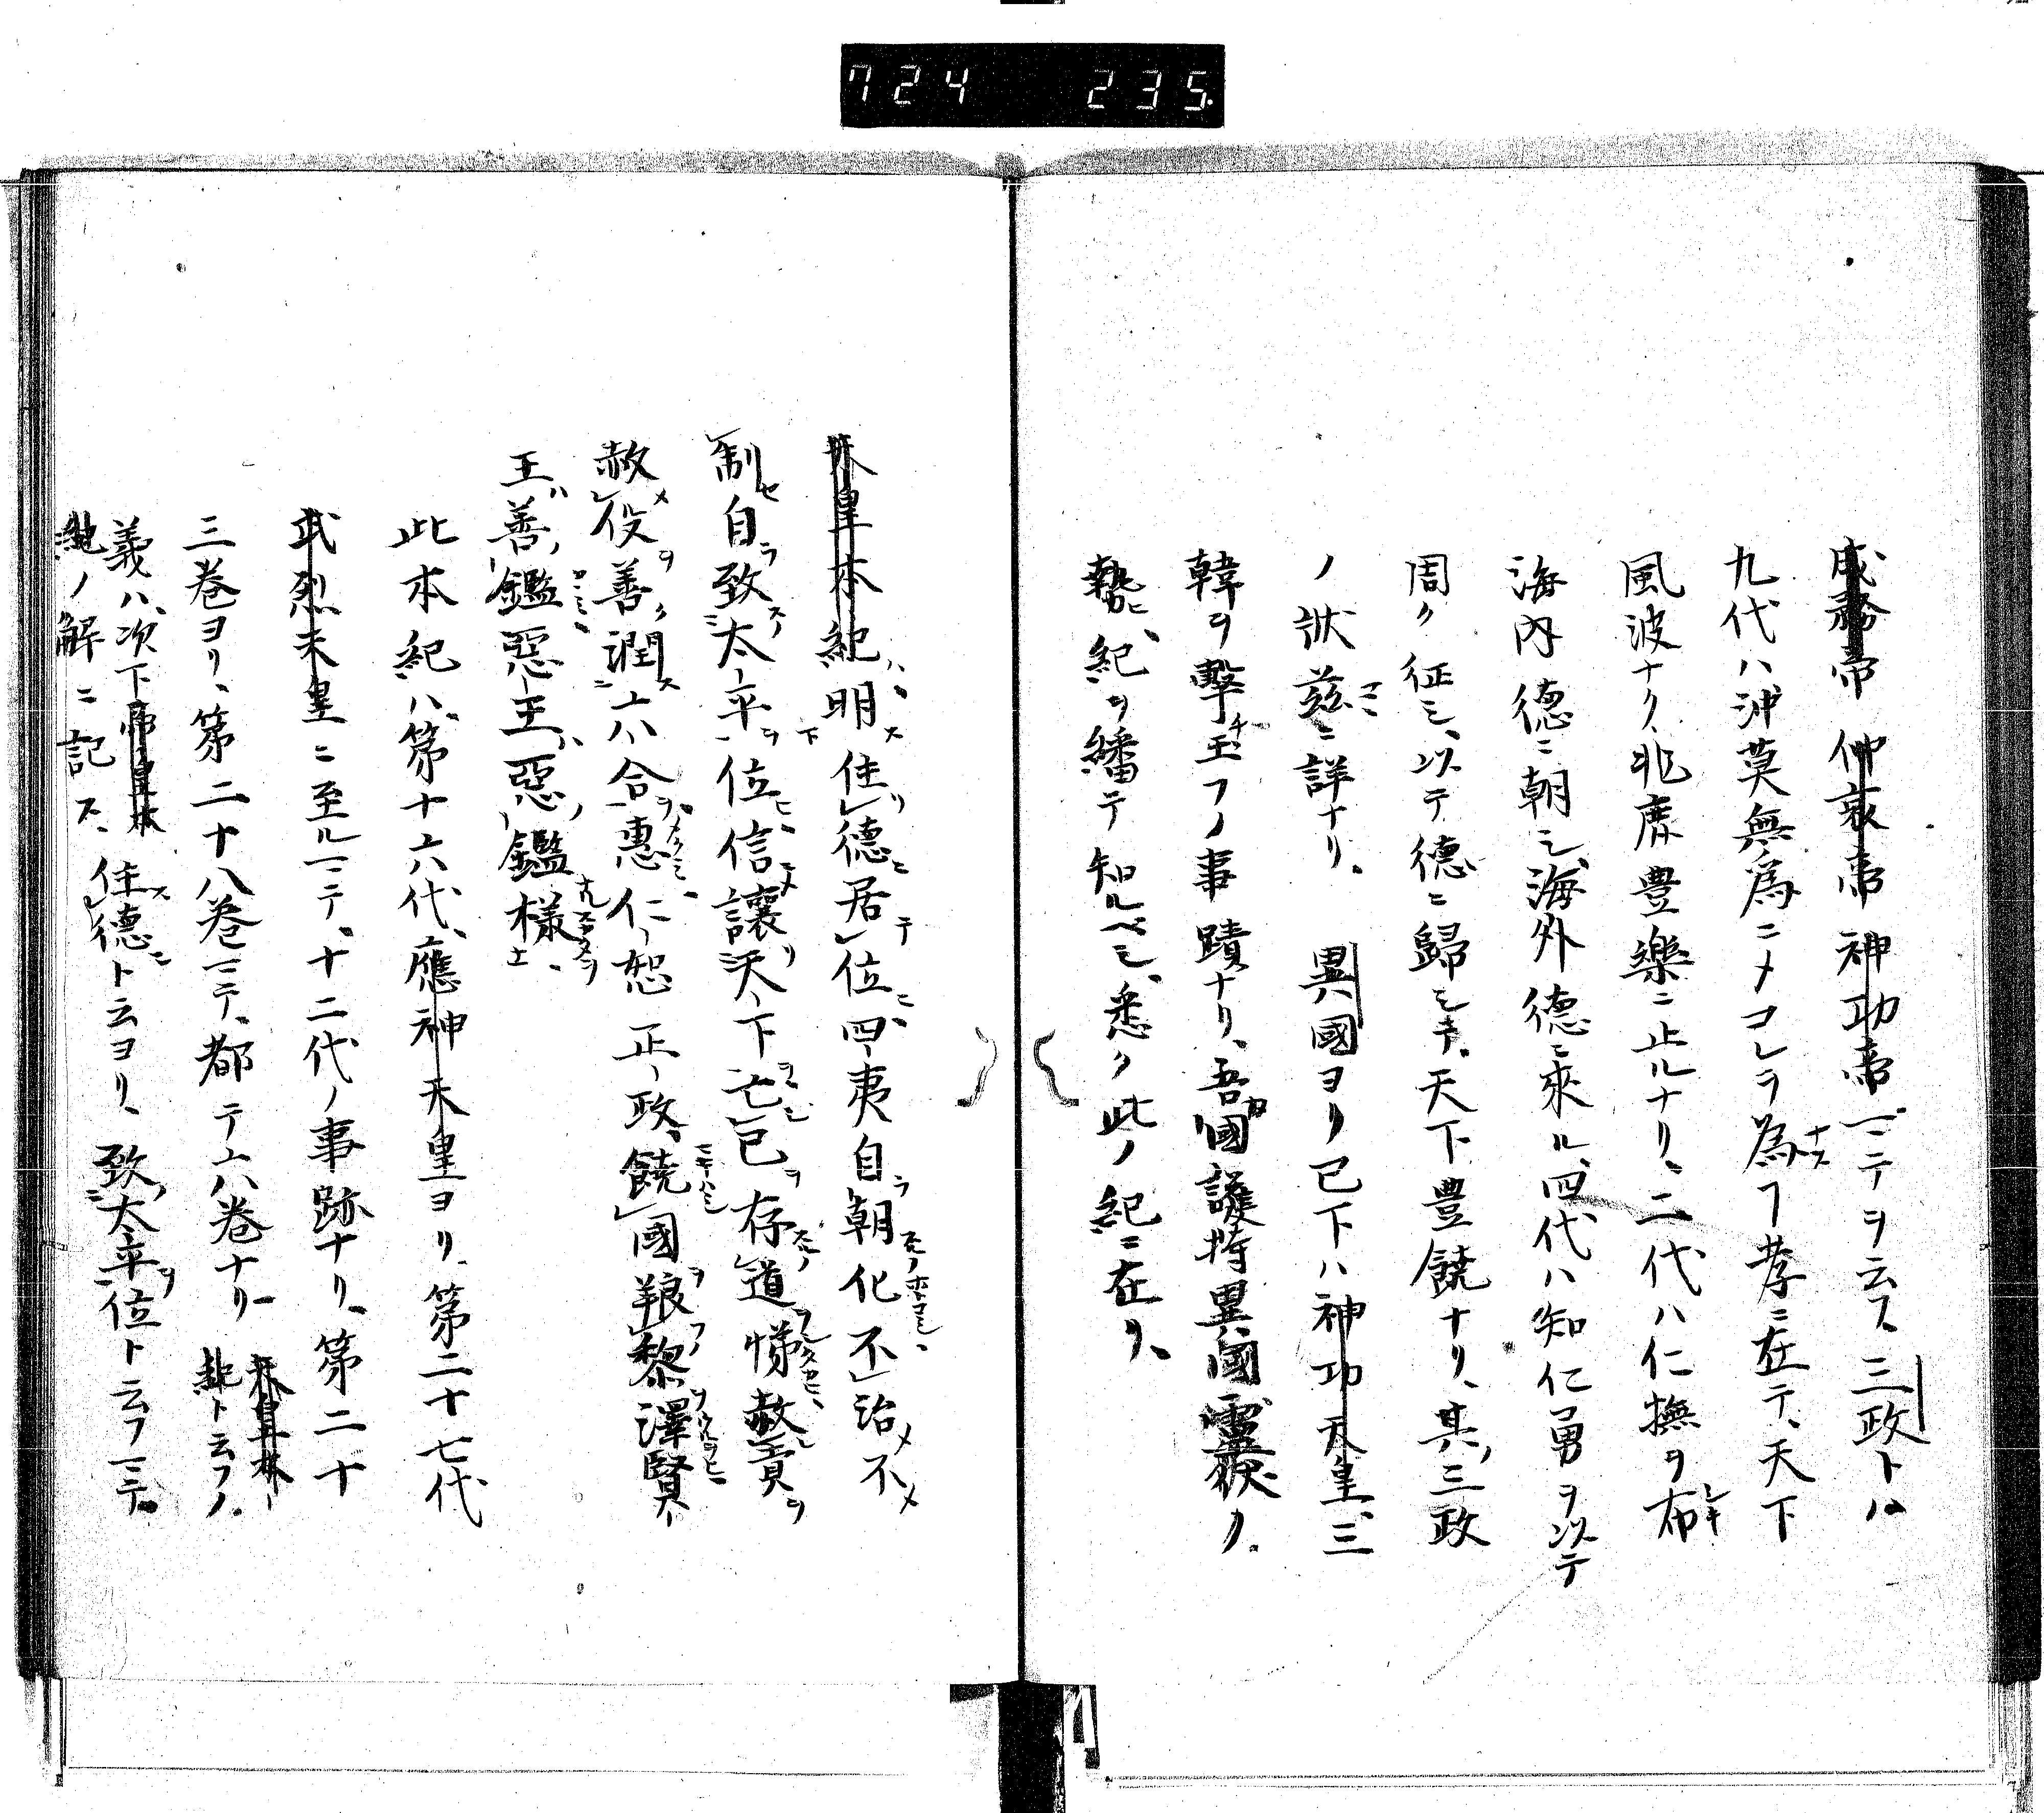 724 235.
成務帝仲哀帝神功帝マテヲ云フ、三政トハ
九代ハ沖莫無為ニメコレヲ為ナスヿ孝ニ在テ、天下
風波ナク、兆席豊樂ニ止ルナリ、二代ハ仁撫ヲ布シキ
海内德ニ朝シ、海外德ニ來ル、四代ハ知仁勇ヲ以テ
周ク征シ、以テ德ニ歸シキ、天下豊饒ナリ、其ノ三政
ノ狀茲ココニ詳ナリ、異國ヨリ已下ハ神功天皇、三
韓ヲ擊チ玉フノ事蹟ナリ、吾カ國護持異國ノ
勢ニ、紀ヲ繙テ知ルベシ、悉ク此ノ紀ニ在リ、
皇本紀ハ明ス住リ德ニ居テ位ニ四夷自ラ朝化不治メ不メ
制セ自ラ致ス太平ヲ位ニ信讓リ天下亡已ヲ存道悌赦貢ヲ
赦メ役ヲ善ク潤ス六合ヲ惠仁恕正政饒國ヲ黎ヲ澤賢
王ハ善ノ鑑惡王ハ惡ノ鑑樣
此本紀ハ、第十六代、應神天皇ヨリ、第二十七代
武烈天皇ニ至ルマテ、十二代ノ事跡ナリ、第二十
三巻ヨリ、第二十八巻マテ、都テ六巻ナリ
皇本紀ト云フノ
義ハ、次下帝皇本
紀ノ解ニ記ス、住ス德ニト云ヨリ、致ス太平ヲ位ト云フマテ